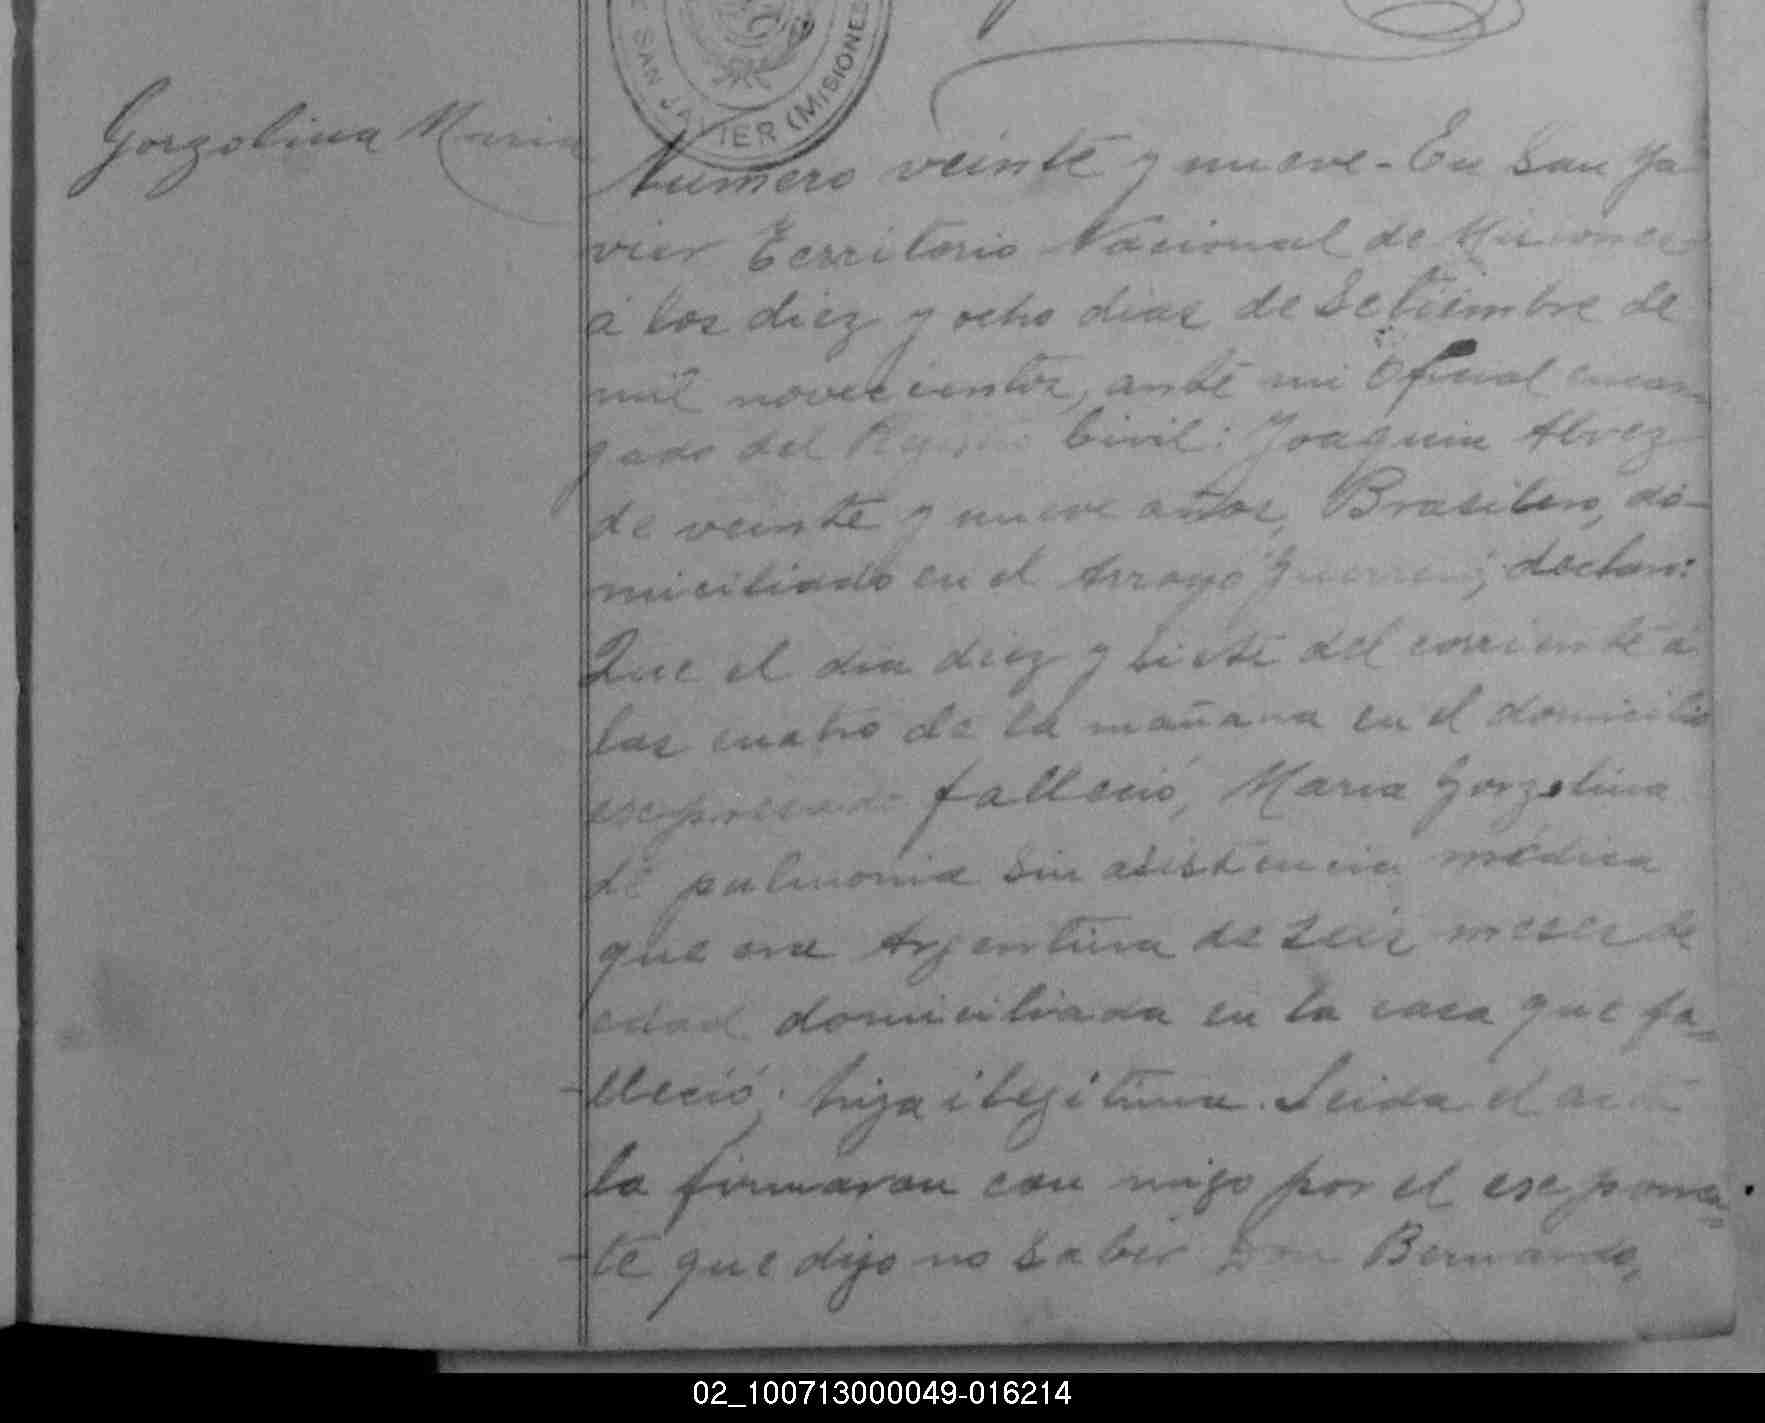 SAN JAVIER (MISIONES
Gorgolina Maria
Numero veinte y nueve - En San Ja
vier Territorio Nacional de Misiones
á los diez y ocho dias de Setiembre de
mil novecientos, ante mi Oficial encar
gado del Registro Civil: Joaquin Alvez
de veinte y nueve años, Brasilero, do-
miciliado en el Arroyo declara:
Que el dia diez y siete del corriente á
las cuatro de la mañana en el domicilio
escpresado falleció, Maria Gorgolina
de pulmonia sin asistencia médica
que era Argentina de seis meses de
edad domiciliada en la casa que fa-
lleció; hija ilegitima. Leida el acta
la firmaron con migo por el escponen-
te que dijo no saber Don Bernardo,
02_100713000049-016214